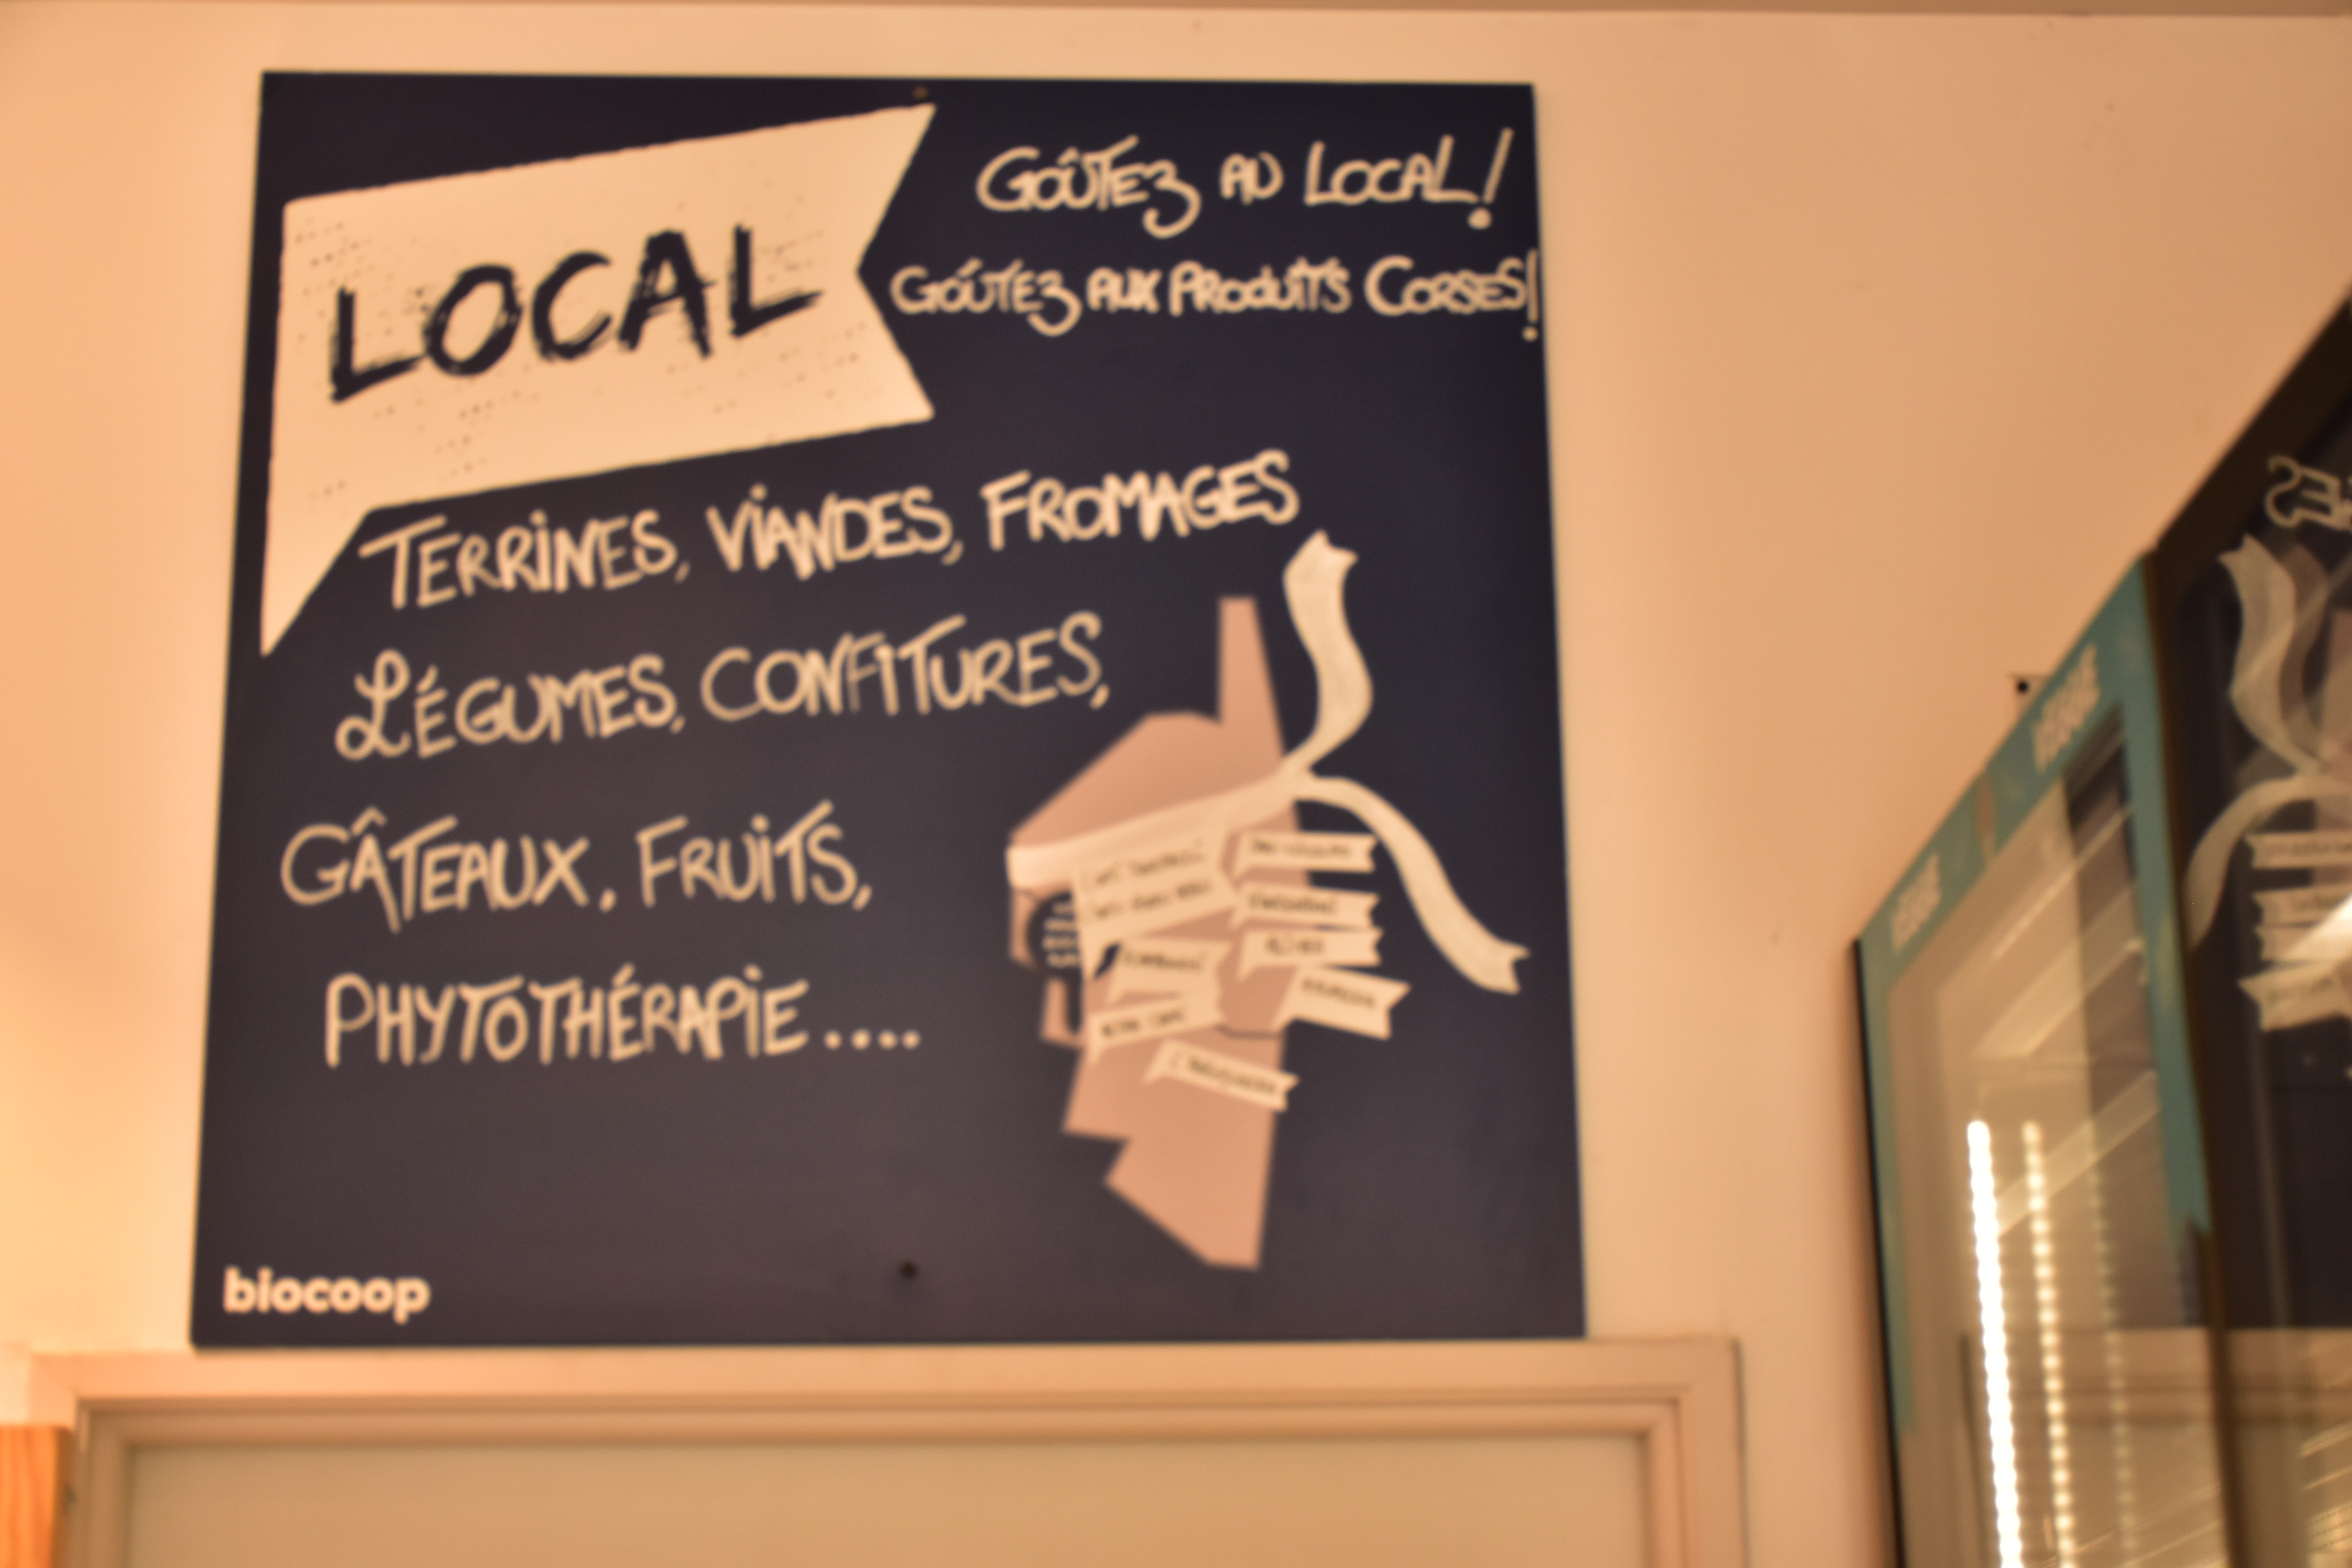 LOCAL
GOÛTEZ AU LOCAL!
GOÛTEZ AUX PRODUITS CORSES!
TERRINES, VIANDES, FROMAGES
LÉGUMES, CONFITURES,
GÂTEAUX, FRUITS,
PHYTOTHÉRAPIE....
biocoop